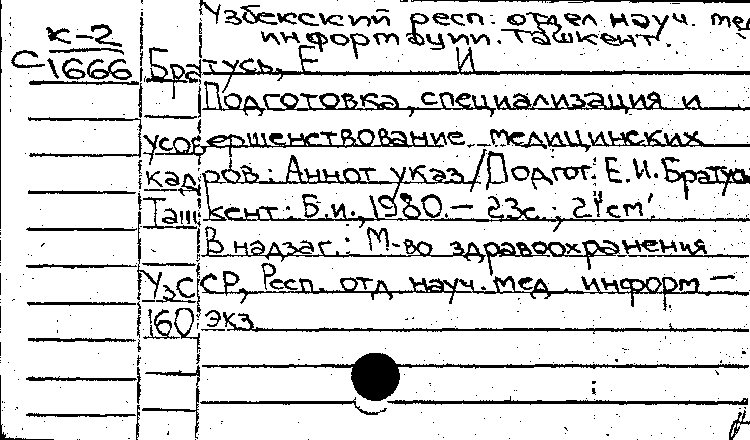 Узбекский респ. отдел науч. мед
информации. Ташкент.
К-2
С 1666 Братусь, Е И
Подготовка, специализация и
усовершенствование медицинских
кадров: Аннот указ/Подгот. Е.И.Братусь
Ташкент: Б.и., 1980.— 23с.; 21 см.
В надзаг.: М-во здравоохранения
УзССР, Респ. отд науч. мед информ —
160 экз